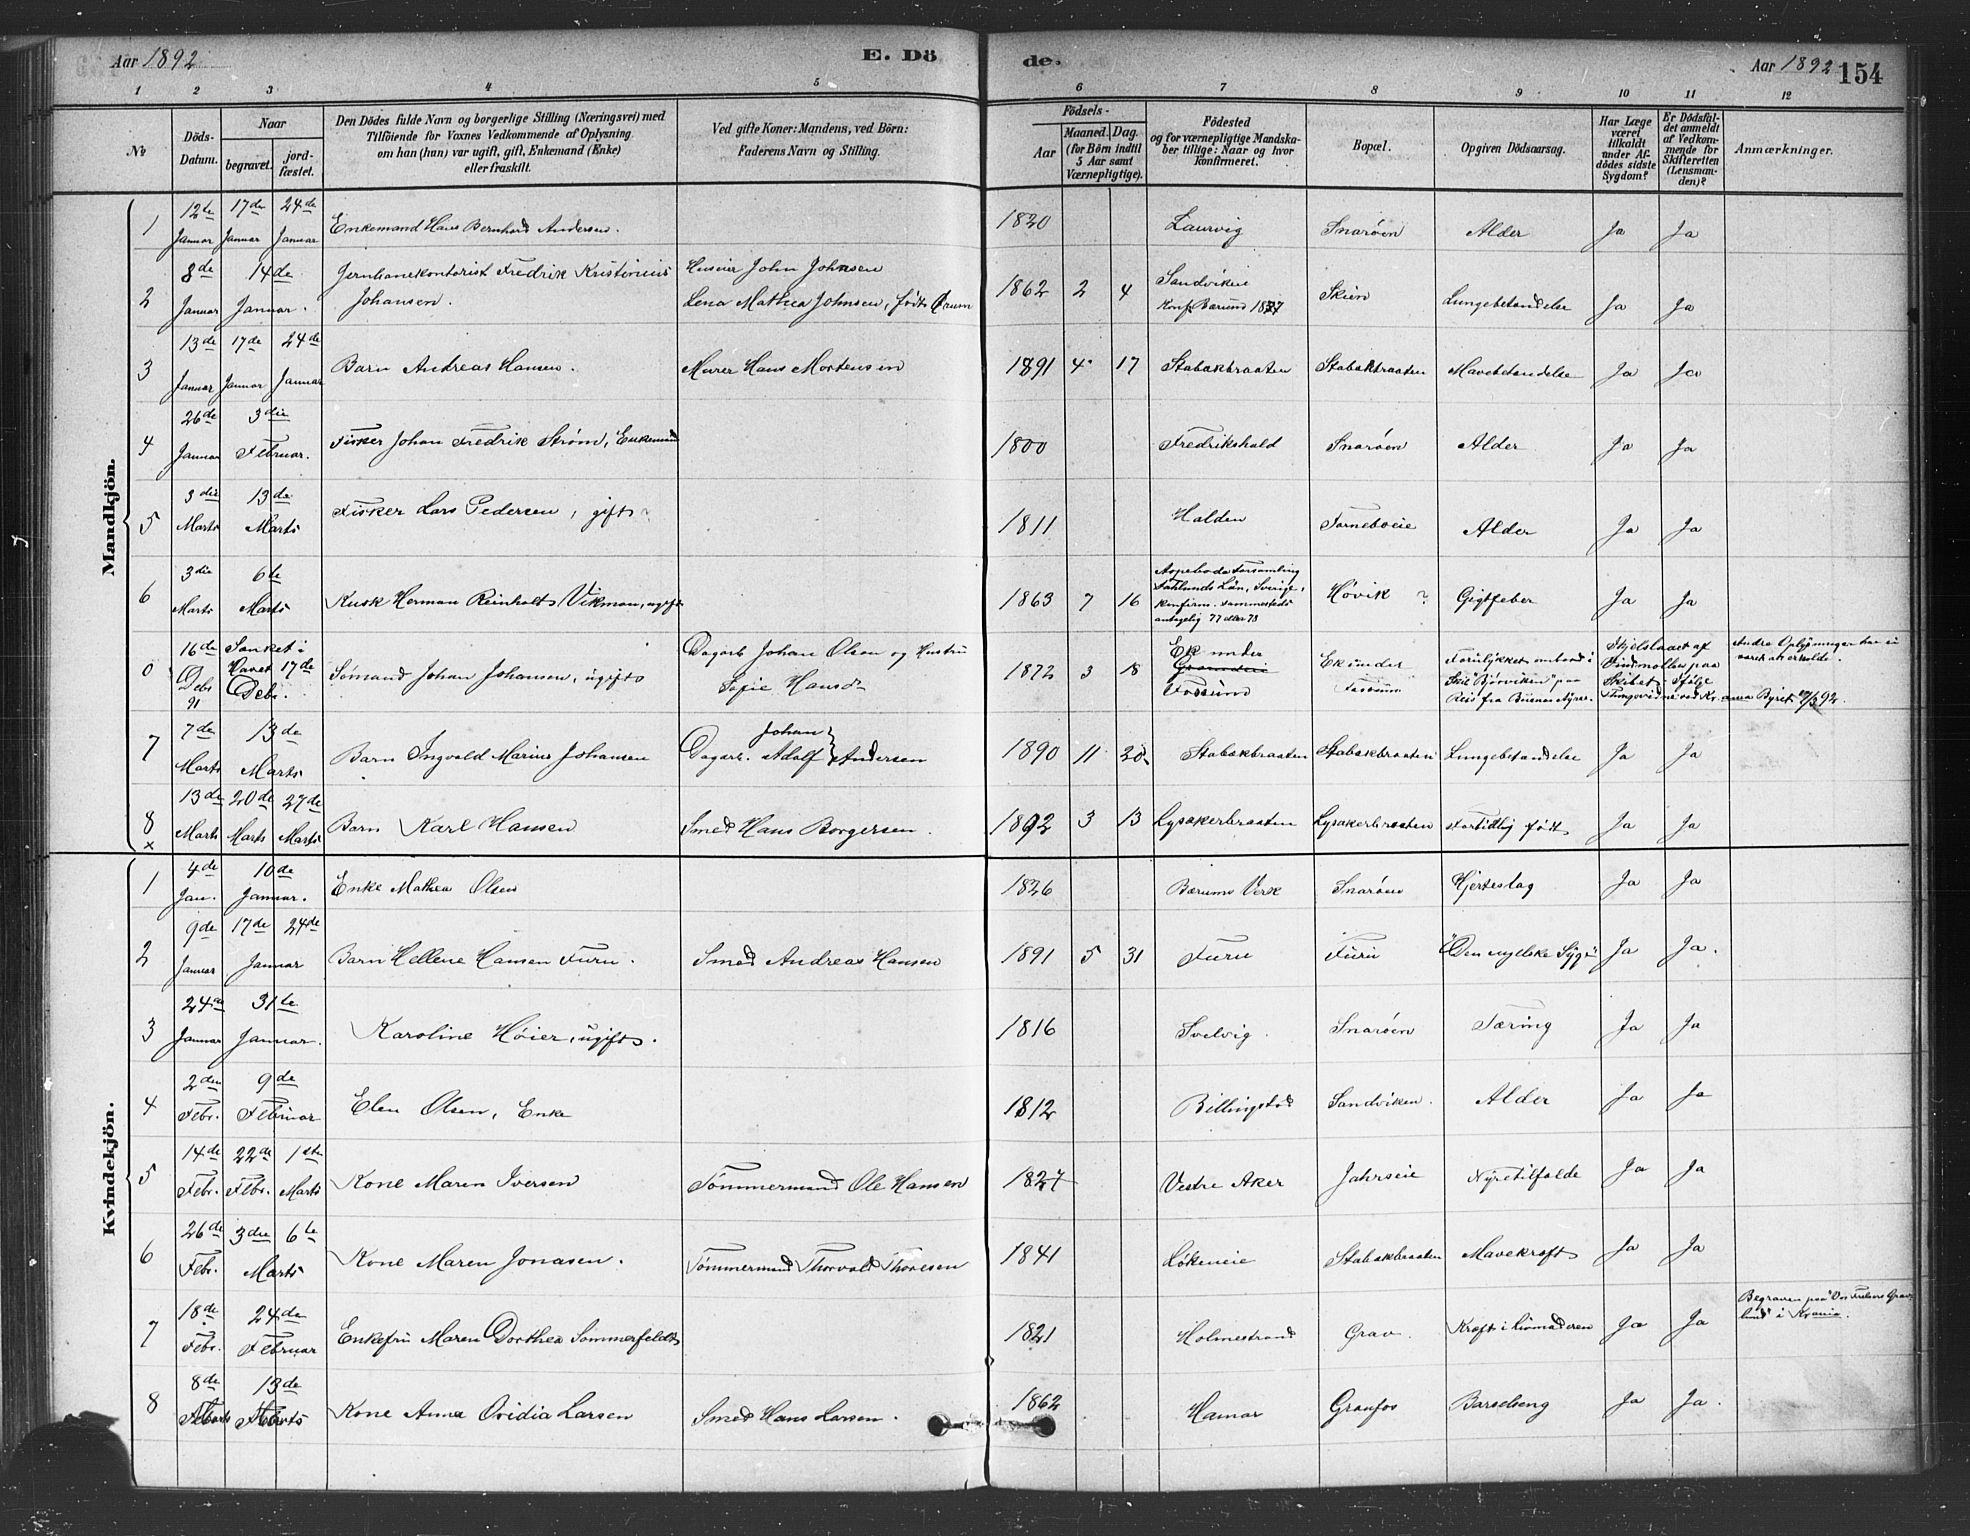 Aar 1892 E. Dö de. Aar 1892 154
1 2 3 4 5 6 7 8 9 10 11 12
№ Döds-Datum. Naar begravet. jordfæstet. Den Dödes fulde Navn og borgerlige Stilling (Næringsvei) med Tilföiende for Voxnes Vedkommende af Oplysning om han (hun) var ugift, gift, Enkemand (Enke) eller fraskilt. Ved gifte Koner: Mandens, ved Börn: Faderens Navn og Stilling. Födsels- Aar Maaned. Dag. (for Börn indtil 5 Aar samt Værnepligtige). Födested og for værnepligtige Mandskaber tillige: Naar og hvor konfirmeret. Bopæl. Opgiven Dödsaarsag. Har Læge været tilkaldt under Afdödes sidste Sygdom? Er Dödsfaldet anmeldt af Vedkommende for Skifteretten (Lensmanden)? Anmærkninger.
Mandkjön.
1 12te Januar 17de Januar 24de Januar Enkemand Hans Bernhard Andersen. 1820 Laurvig Snarøen Alder Ja Ja
2 8de Januar 14de Januar. Jernbanekontorist Fredrik Kristinius Johansen. Huseier John Johnsen Lena Mathea Johnsen, født Ørum 1862 2 4 Sandviken Konf. Bærum 1877 Skien Lungebetændelse Ja Ja
3 13de Januar 17de Januar 24de Januar Barn Andreas Hansen. Murer Hans Mortensen 1891 4 17 Stabækbraaten Stabækbraaten Mavebetændelse Ja Ja
4 26de Januar 3die Februar. Fisker Johan Fredrik Strøm, Enkemand 1800 Fredrikshald Snarøen Alder Ja Ja
5 3die Marts 13de Marts Fisker Lars Pedersen, gift? 1811 Halden Fornebveie Alder Ja Ja
6 3die Marts 6te Marts Kusk Herman Reinholt Vikman, ugift 1863 7 16 Forsamling Län, Sverige, konfirm. sammesteds antagelig 77 eller 78 Høvik ? Gigtfeber Ja Ja
0 16de Debr 91 Sænket i Havet 17de Debr. Sømand Johan Johansen, ugift Dagarb. Johan Olsen og Hustru Sofie Hansd. 1872 3 18 Ek under Fossum Ek under Fossum Forulykket ombord i Skib "Bjørviken" paa Reis fra Buenos Ayres. Ihjelslaaet af Vindmøllen paa Skibet. Ifølge Tingsvidne ved Kr.ania Byret 92. Andre Oplysninger har ei været at erholde.
7 7de Marts 13de Marts Barn Ingvald Marius Johansen Dagarb. Johan Adolf Andersen 1890 11 20 Stabækbraaten Stabækbraaten Lungebetændelse Ja Ja
8 x 13de Marts 20de Marts 27de Marts Barn Karl Hansen Smed Hans Borgersen. 1892 3 13 Lysakerbraaten Lysakerbraaten Fortidlig født Ja Ja
Kvindekjön.
1 4de Jan. 10de Januar. Enke Mathea Olsen 1826 Bærums Verk Snarøen Hjerteslag Ja Ja
2 9de Januar 17de 24de Januar Barn Hellene Hansen Furu. Smed Andreas Hansen 1891 5 31 Furu Furu "Den engelske Syge" Ja Ja.
3 24de Januar 31te Januar. Karoline Høier, ugift. 1816 Svelvig. Snarøen Tæring Ja Ja
4 2den Febr. 9de Februar Elen Olsen, Enke 1812 Billingstad Sandviken. Alder Ja Ja
5 14de Febr. 22de Febr. 1ste Marts Kone Maren Iversen Tømmermand Ole Hansen 1827 Vestre Aker Jahrseie Nyretilfælde Ja Ja
6 26de Febr. 3die 6te Marts Kone Maren Jonasen. Tømmermand Thorvald Thoresen 1841 Løkeneie Stabækbraaten Mavekræft Ja Ja
7 18de Febr. 24de Februar Enkefru Maren Dorthea Sommerfeldt 1821 Holmestrand Grav. Kræft i Livmoderen Ja Ja Begraven paa "Vor Frelsers Gravlund" i Krania.
8 8de Marts 13de Marts Kone Anna Ovidia Larsen Smed Hans Larsen. 1862 Hamar Granfos Barselseng Ja Ja.